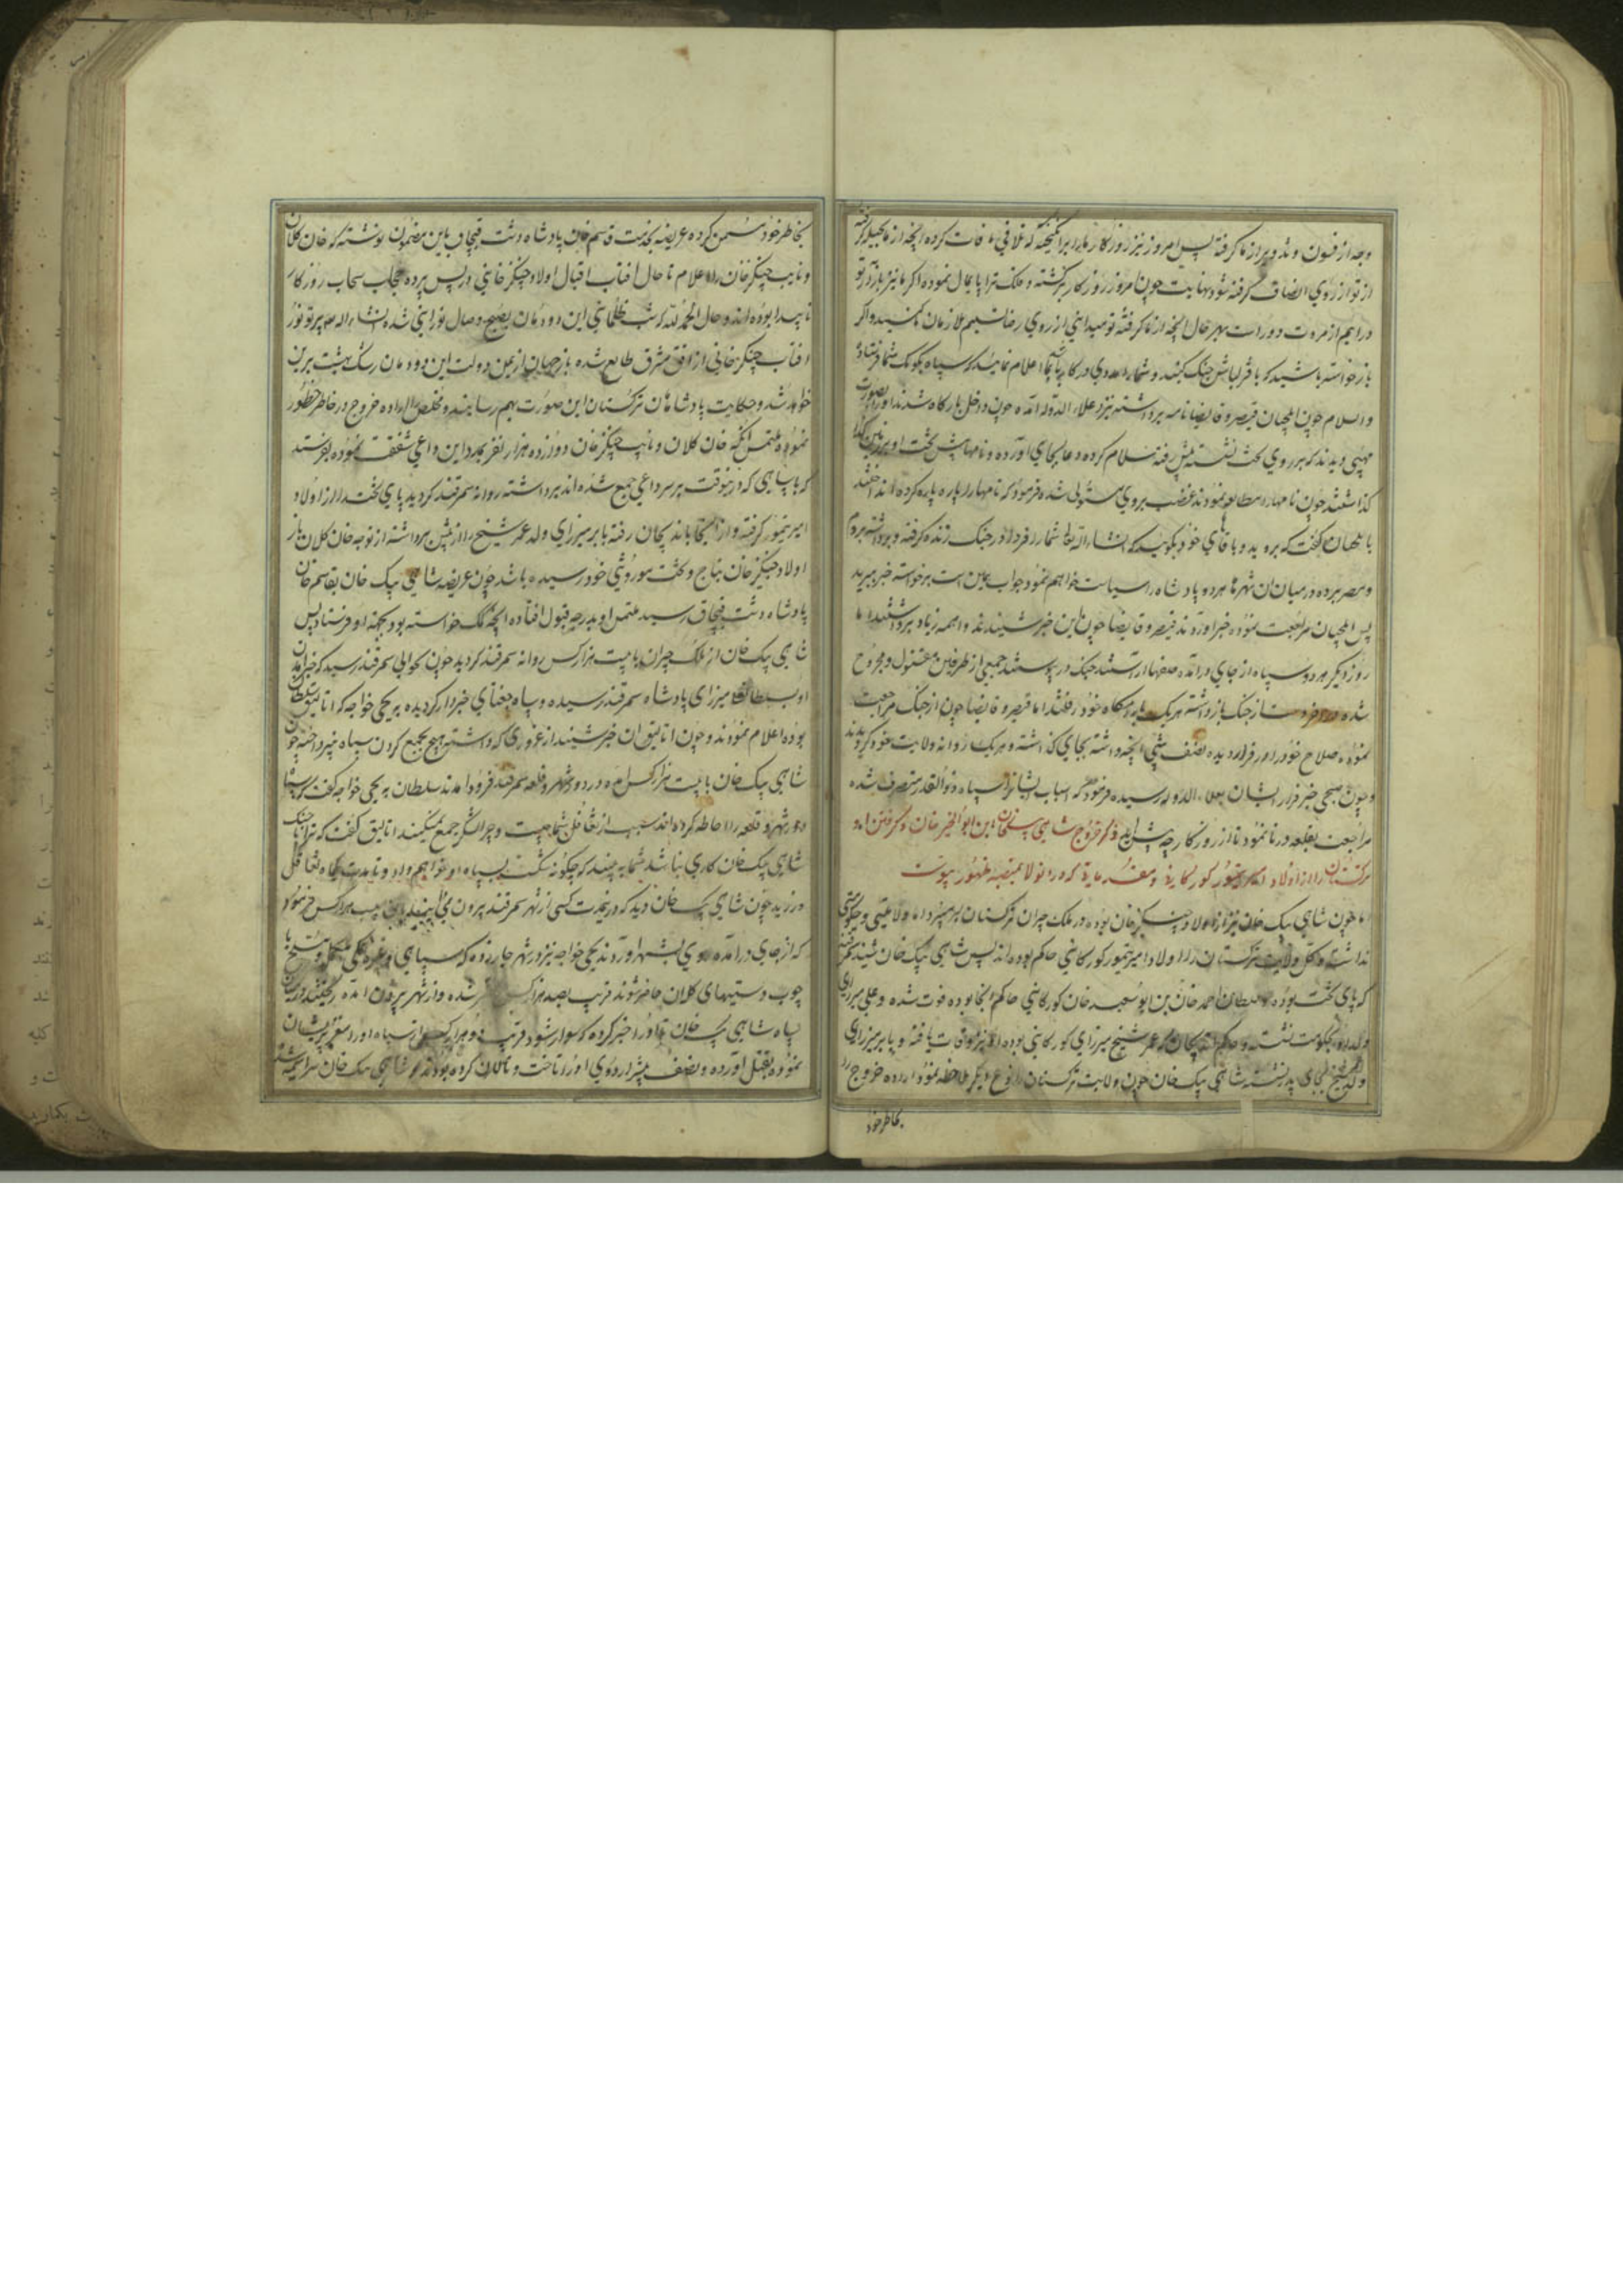 وجه از فسون و تذویر از ما گرفته پس امروز نیز روزگار مارا برانگیخته که تلافی مافات کرده آنچه از ما بحیله گرفته
از تو از روی انصاف گرفته شود نهایت چون امروز روزگار برگشته و ملک ترا پایمال نموده اگر ما نیز بازار تو
در آییم از مروت دور است بهر حال آنچه از ما گرفته تو میدانی از روی رضا تسلیم ملازمان ما کنید و اگر
باز خواسته باشید که با قزلباش جنگ کنید و شمارا مددی در کار باشد بما اعلام نمایید که سپاه بکومک شما فرستاده
والسلام چون ایلچیان قیصر و قایضا نامه برداشته نزد علاء الدوله آمده چون داخل بارگاه شدند او را بصورت
مهیبی دیدند که بر روی تخت نشسته پیش رفته سلام کرده دعا بجای آورده و نامها پیش تخت او بر زمین
گذاشتند چون نامهارا مطالعه نمودند غضب بروی مستولی شده فرمود که نامها را پاره پاره کرده انداختند
با ایلچیان گفت که بروید و با آقای خود بگویید که انشاء الله تعالی شمارا فردا در جنگ زنده گرفته و برداشته بروم
و بمصر برده در میان آن شهر ها هر دو پادشاه را سیاست خواهم نمود جواب همین است برخواسته خبر ببرید
پس ایلچیان مراجعت نموده خبر آوردند قیصر و قایضا چون این خبر شنیدند غم و اهمه زیاد برداشتند اما
روز دیگر هر دو سپاه از جای درآمده صفها آراستند جنگ در پیوستند جمعی از طرفین مقتول و مجروح
شده دست از جنگ باز داشته هریک بآرامگاه خود رفتند اما قیصر و قایضا چون از جنگ مراجعت
نموده صلاح خود را در فرار دیده نصف شبی آنچه داشته بجای گذاشته و هریک روانه ولایت خود گردیدند
و چون صبحی خبر فرار ایشان بعلاء الدوله رسیده فرمود که اسباب ایشانرا سپاه ذوالقدر متصرف شده
مراجعت بقلعه درنا نمود تا از روزگار چه پیش آید ذکر خروج شاهی بیک خان ابن ابو الخیر خان و گرفتن او
ترکستان را از اولاد امیر تیمور کورکانی و مقدماتی که در انولا بمنصه ظهور پیوست
اما چون شاهی بیک خان نیز از اولاد چنگیز خان بوده در ملک چران ترکستان بسر میبرد اما ولایتی و حکومتی
نداشته و کل ولایت ترکستان را اولاد امیر تیمور کورکانی حاکم بوده اند پس شاهی بیک خان شنید که سمرقند
که پای تخت بوده و سلطان احمد خان بن ابو سعید خان کورکانی حاکم آنجا بوده فوت شده و علی میرزای
ولد او بحکومت نشسته و حاکم اندیجان که عمر شیخ میرزای کورکانی بوده او نیز وفات یافته و بابر میرزای
ولد عمر شیخ بجای پدر نشسته شاهی بیک خان چون ولایت ترکستان را نوع دیگر ملاحظه نمود اراده خروج را
بخاطر خود
بخاطر خود مستحسن کرده عریضه بخدمت قاسم خان پادشاه دشت قبچاق باین مضمون نوشته که خان کلان
و نایب چنگیز خان را اعلام تا حال آفتاب اقبال اولاد چنگیز خانی در پس پرده حجاب سحاب روزگار
ناپیدا بوده اند و حال الحمد لله که شب ظلمانی این دودمان بصبح وصال نورانی شده انشاء الله پرتو نور
آفتاب چنگیز خانی از افق مشرق طالع شده باز جهان از یمن دولت این دودمان رشک بهشت برین
خواهد شد و حکایت پادشاهان ترکستان این صورت بهم رسانیده و مخلص را اراده خروج در خاطر خطور
نموده ملتمس آنکه خان کلان و نایب چنگیز خان دوازده هزار نفر بمدد این داعی شفقت نموده بفرستد
که با سپاهی که درینوقت بر سر داعی جمع شده اند برداشته روانه سمرقند گردید پای تخت را از اولاد
امیر تیمور گرفته و از آنجا باندیجان رفته بابر میرزای ولد عمر شیخ را از پیش برداشته از توجه خان کلان باز
اولاد چنگیز خان بتاج و تخت موروثی خود رسیده باشد چون عریضه شاهی بیک خان بقاسم خان
پادشاه دشت قبچاق رسید ملتمس او بدرجه قبول افتاده آنچه کمک خواسته بود بجهته او فرستاد پس
شاهی بیک خان از ملک چران با بیست هزار کس روانه سمرقند گردید چون بحوالی سمرقند رسید که خبر آمدن
او بسلطانعلی میرزای پادشاه سمرقند رسیده و سپاه جغتای خبردار گردیده به یحیی خواجه که اتالیق سلطان
بوده اعلام نمودند و چون اتالیق آن خبر شنید از غروری که داشته هیچ بجمع کردن سپاه نپرداخته چون
شاهی بیک خان با بیست هزار کس آمده در دور شهر و قلعه سمرقند فرود آمدند سلطان به یحیی خواجه گفت که سپاه
دور شهر و قلعه را احاطه کرده اند سبب از تغافل شما چیست و چرا لشکر جمع نمیکنید اتالیق گفت که ترا با جنگ
شاهی بیک خان کاری نباشد شما به بینید که چگونه شکست بسپاه او خواهم داد و تا مدت یکماه تغافل
ورزید چون شاهی بیک خان دید که در نمدت کسی از شهر سمرقند بیرون نمی آید
که از جای درآمده روی بشهر آوردند یحیی خواجه نیز در شهر جار زده که سپاهی و غیره همگی مکمل و مسلح با
چوب دستیهای کلان حاضر شوند قریب بصد هزار کس حاضر شده و از شهر بیرون آمده ریختند در میان
سپاه شاهی بیک خان تا او را خبر کرده که سوار شود قریب دو هزار کس از سپاه او را سر پریشان
نموده بقتل آورده و نصف بیشتر اردوی او را تاخت و تالان کرده بودند شاهی بیک خان سراسیمه شده